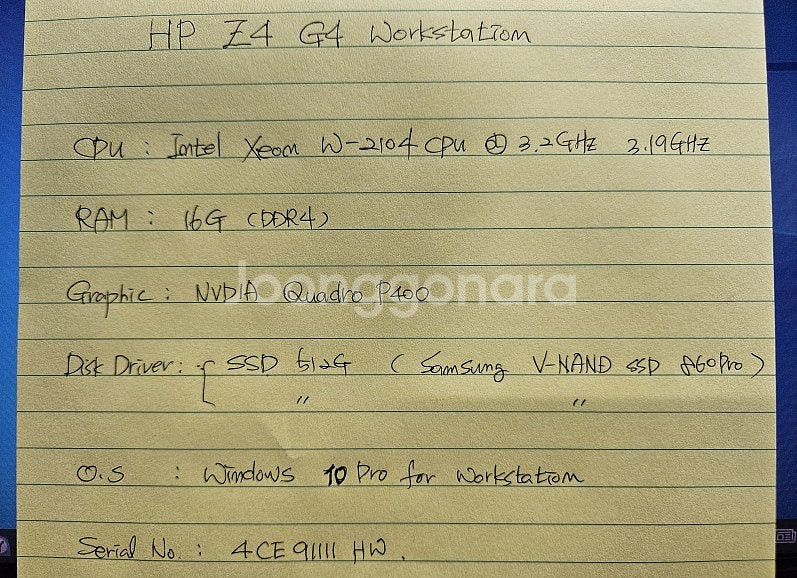 HP Z4 G4 Workstation
CPU : Intel Xeon W-2104 CPU @ 3.2GHz 3.19GHz
RAM : 16G (DDR4)
Graphic : NVDIA Quadro P400
joonggonara
Disk Driver : { SSD 512G ( Samsung V-NAND SSD 860pro )
〃 〃
O.S : Windows 10 pro for Workstation
Serial No. : 4CE91111HW.